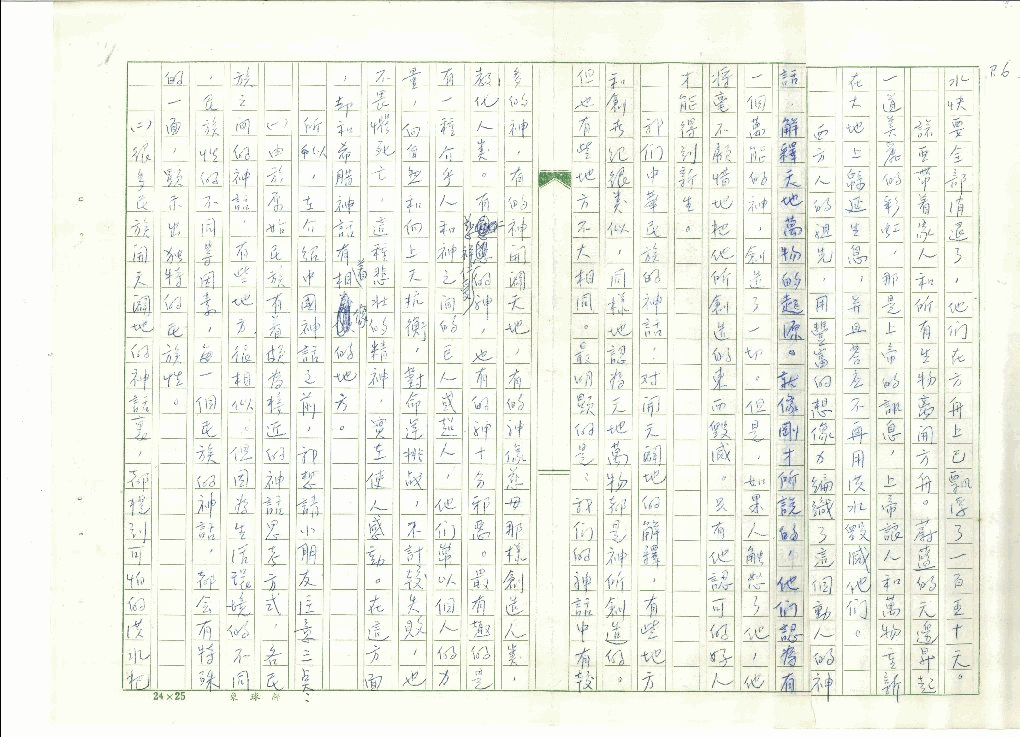 P.6
水快要全部消退了，他們在方舟上已飄浮了一百五十天。
該亞帶着家人和所有生物離開方舟。蔚藍的天邊昇起
一道美麗的彩虹，那是上帝的訊息，上帝讓人和萬物重新
在大地上綿延生息，並且答應不再用洪水毀滅他們。
西方人的祖先，用豐富的想像力編織了這個動人的神
話，解釋天地萬物的起源。就像剛才所說的，他們認為有
一個萬能的神，創造了一切。但是，如果人觸怒了他，他
將毫不顧惜地把他所創造的東西毀滅。只有他認可的好人
才能得到新生。
我們中華民族的神話，對開天闢地的解釋，有些地方
和創世紀很類似，同樣地認為天地萬物都是神所創造的。
但也有些地方不大相同。最明顯的是，我們的神話中有較
多的神，有的神開闢天地，有的神像慈母那樣創造人類，
教化人類。有的神，也有的神十分邪惡。最有趣的是
有一種介乎人和神之間的巨人或超人，他們常以個人的力
量，向自然和向上天抗衡，對命運挑戰，不計較失敗，也
不畏懼死亡，這種悲壯的精神，實在使人感動。在這方面
，却和希腊神話有相像的地方。
所以，在介紹中國神話之前，我想請小朋友注意三點：
㈠由於原始民族有着頗為接近的神話思考方式，各民
族之間的神話，有些地方，很相似。但因為生活環境的不同
，民族性的不同等因素，每一個民族的神話，都会有特殊
的一面，顯示出独特的民族性。
㈡很多民族開天闢地的神話裏，都提到可怕的洪水把
24×25